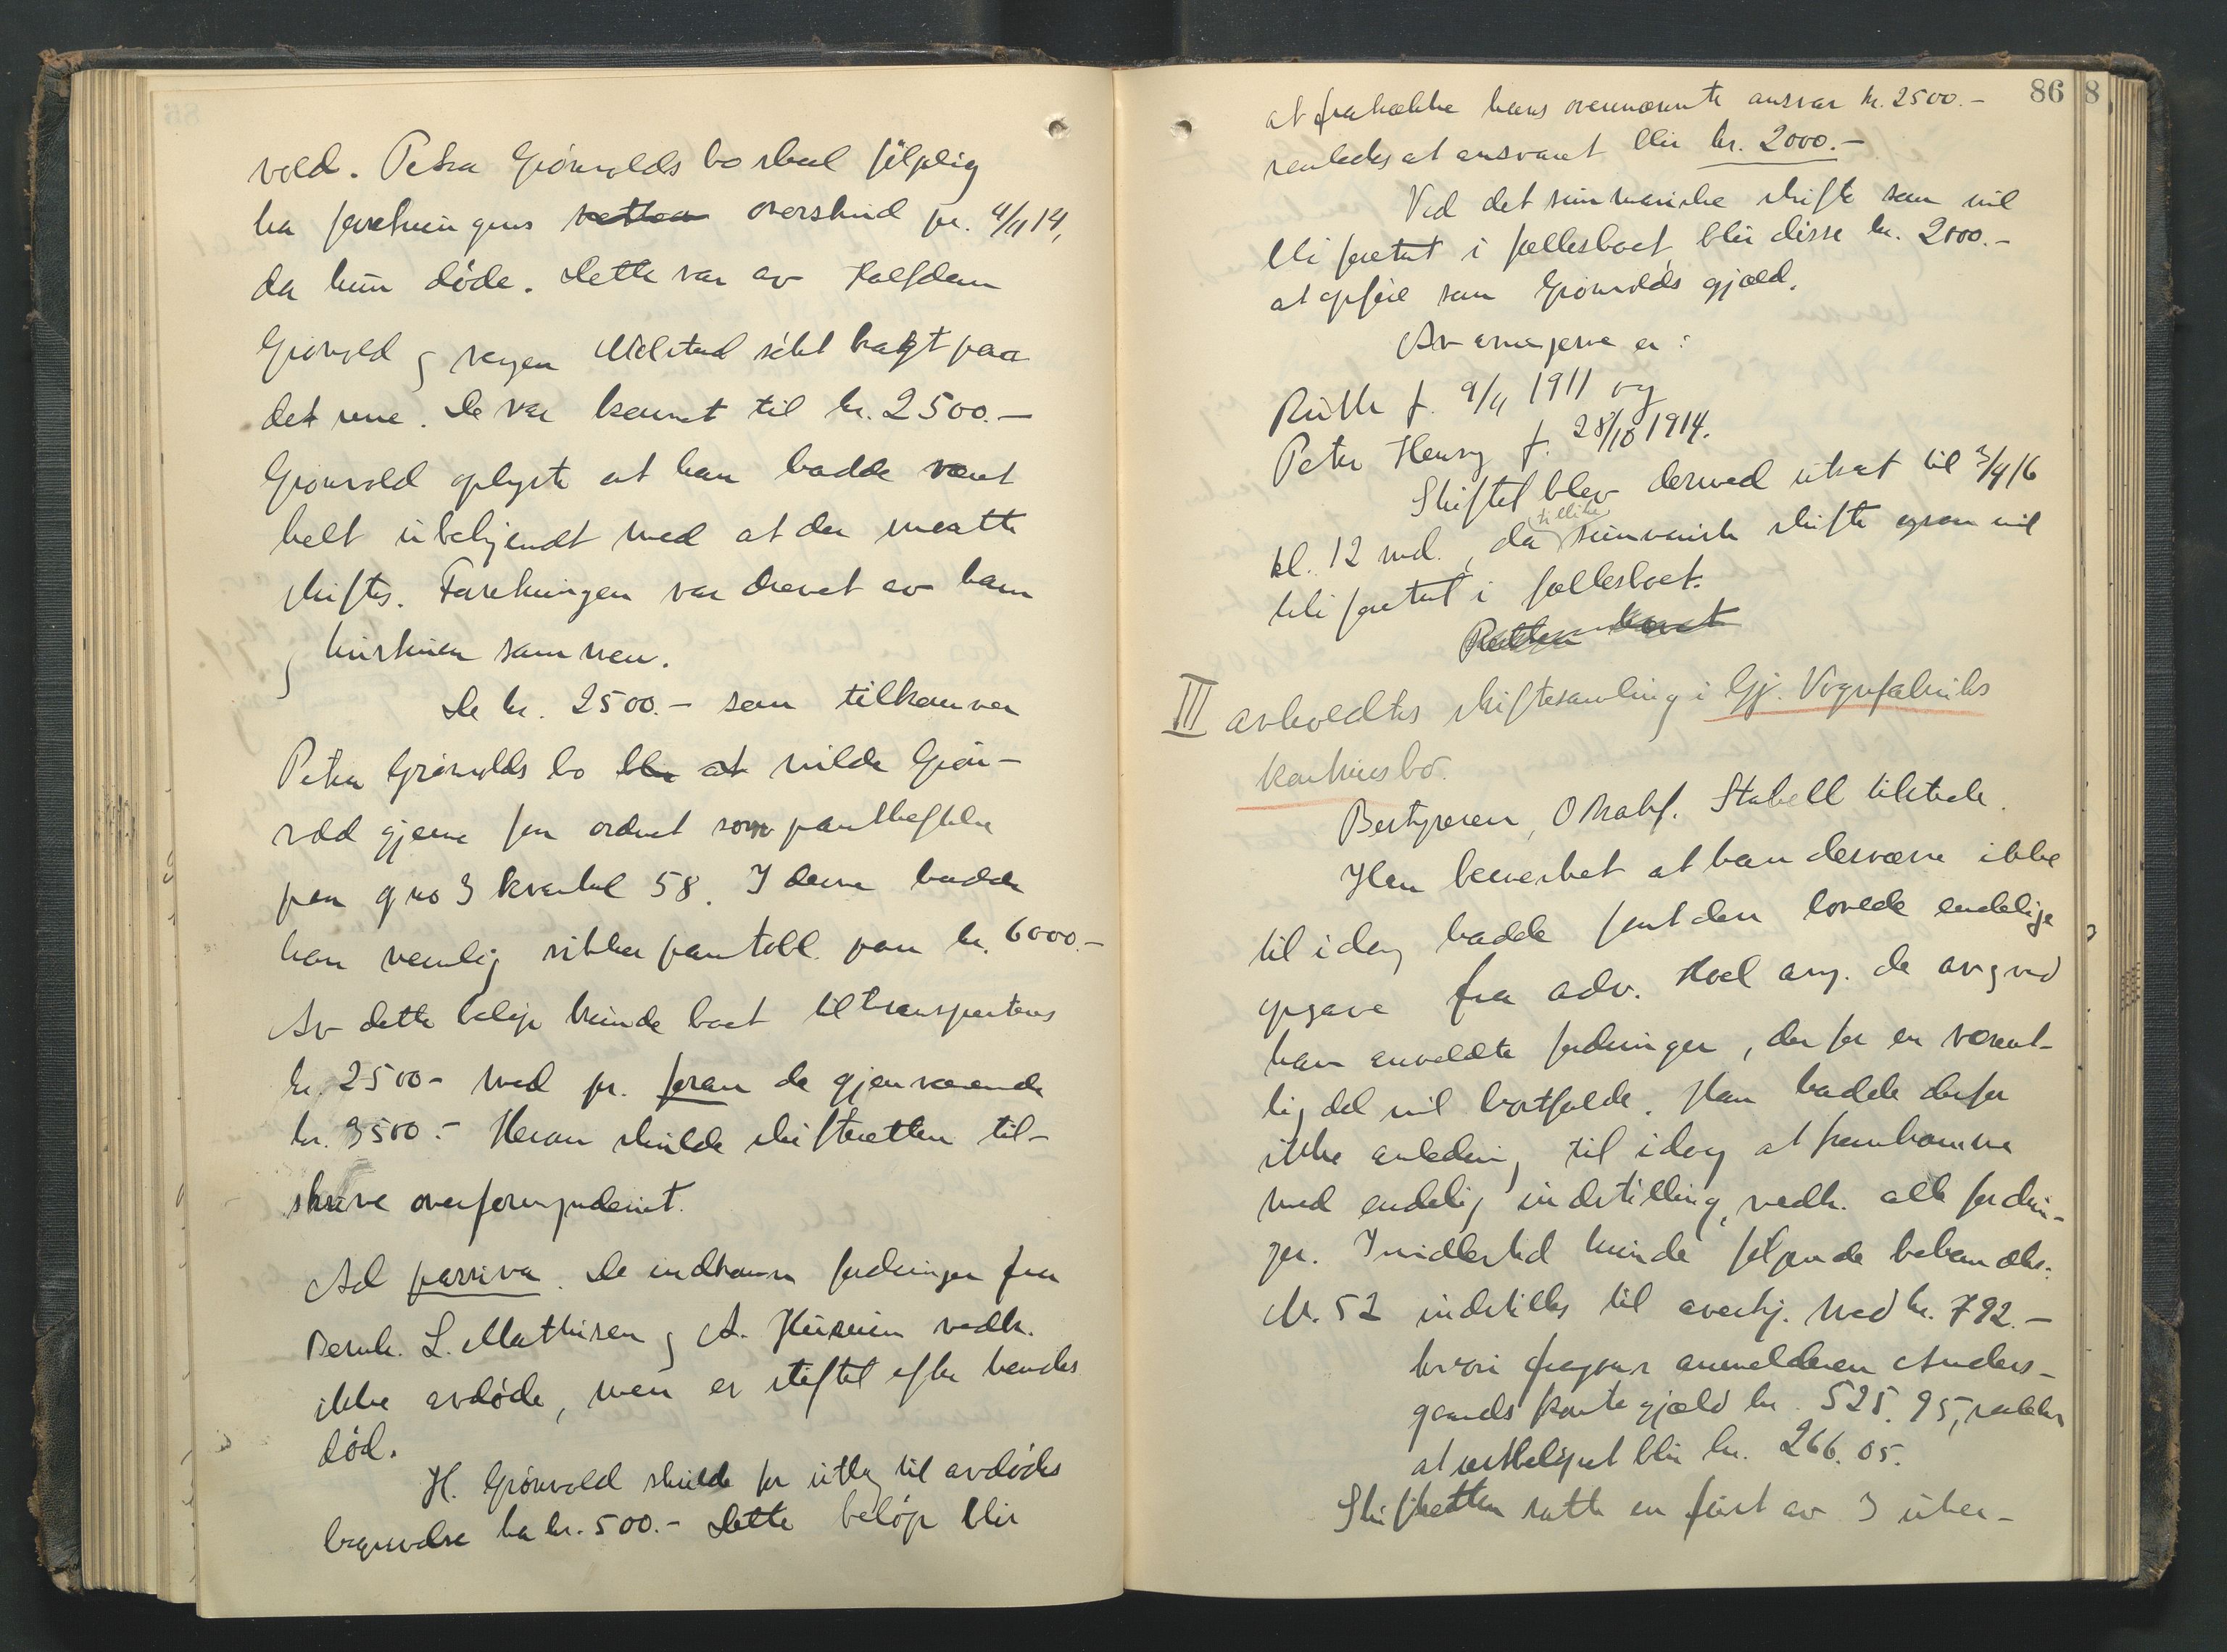 vold. Petra Grönvolds bo skul følgelig
ha forretningens retten overskud pr. 4/11 14,
da hun døde. Dette var av Halfdan
Grönvold og revisor Mølstad søkt bragt paa
det rene. De var kommet til kr. 2500.-
Grönvold oplyste at han hadde været
helt ubekjendt med at der maatte
skiftes. Forretningen var drevet av ham
og hustruen sammen.
De kr. 2500.- som tilkommer
Petra Grönvolds bo blir at vilde Grön-
vold gjerne faa ordnet som pantheftelse
paa g no 3 kvartal 58. I denne hadde
han nemlig sikker pantobl. paa kr. 6000.-
Av dette beløp kunde boet tiltransporteres
kr. 2500- med pr. foran de gjenværende
kr. 3500.- Herom skulde skifteretten til-
skrive overformynderiet.
Ad passiva. De indkomne fordringer fra
Bernh. L. Mathisen og A. vedk.
ikke avdøde, men er stiftet efter hendes
død.
H. Grönvold skulde for utlæg til avdødes
begravelse ha kr. 500.- Dette beløp blir
86 8
at fratrække hans ovennævnte ansvar kr. 2500.-
saaledes at ansvaret blir kr. 2000.-
Ved det summariske skifte som vil
bli foretat i fællesboet, blir disse kr. 2000.-
at opføre som Grönvolds gjæld.
Arvingerne er:
Ruth f. 9/11 1911 og
Peter Henry f. 28/10 1914.
Skiftet blev dermed utsat til 3/4 16
kl. 12 md., da (tillike) summarisk skifte ogsaa vil
bli foretat i fællesboet.
Retten hævet
III avholdtes skiftesamling i Gj. Vognfabriks
konkursbo.
Bestyreren, O.r.sakf. Stabell tilstede.
Han bemerket at han desværre ikke
til idag hadde faat den lovede endelige
opgave fra adv. Hoel ang. de av og ved
ham anmeldte fordringer, der for en væsent-
lig del vil bortfalde. Han hadde derfor
ikke anledning til idag at fremkomme
med endelig indstilling vedk. alle fordrin-
ger. Imidlertid kunde følgende behandles:
Nr. 52 indstilles til anerkj. med kr. 792.-
hvori fragaar anmelderen Anders-
gaards konto gjæld kr. 525.95, saaledes
at restbeløpet blir kr. 266.05.
Skifteretten satte en frist av 3 uker-